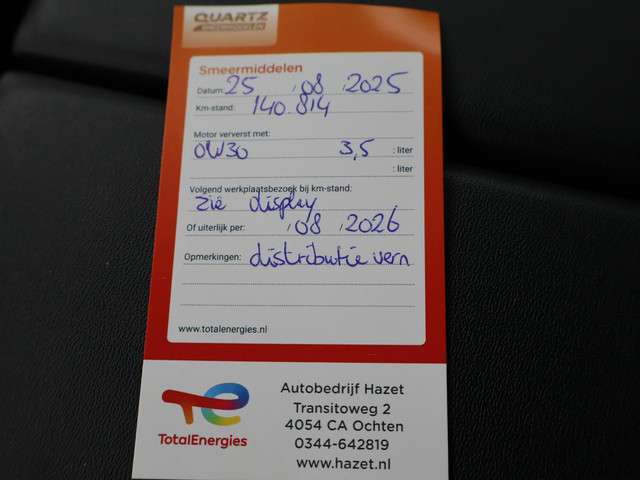 QUARTZ
SMEERMIDDELEN
Smeermiddelen
Datum: 25 / 08 / 2025
Km-stand: 140.814
Motor ververst met:
0W30 3,5 : liter
: liter
Volgend werkplaatsbezoek bij km-stand:
zie display
Of uiterlijk per: / 08 / 2026
Opmerkingen: distributie vern
www.totalenergies.nl
TotalEnergies
Autobedrijf Hazet
Transitoweg 2
4054 CA Ochten
0344-642819
www.hazet.nl